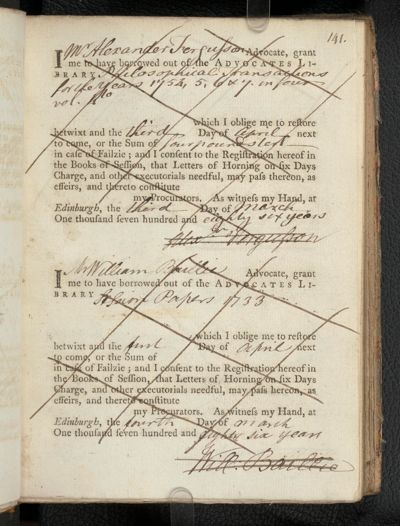 141.
I Mr Alexander Fergusson Advocate, grant
me to have borrowed out of the ADVOCATES LI-
BRARY, Philosophical Transactions
for the Years 1754, 5, 6 & 7. in four
vol.
which I oblige me to reſtore
betwixt and the third Day of April next
to come, or the Sum of four pound sterl
in caſe of Failzie; and I conſent to the Regiſtration hereof in
the Books of Seſſion, that Letters of Horning on ſix Days
Charge, and other executorials needful, may paſs thereon, as
effeirs, and thereto conſtitute
my Procurators. As witneſs my Hand, at
Edinburgh, the third Day of March
One thouſand ſeven hundred and eighty six years
Alexr Fergusson
I Mr William Baillie Advocate, grant
me to have borrowed out of the ADVOCATES LI-
BRARY Papers 1733
which I oblige me to reſtore
betwixt and the first Day of April next
to come, or the Sum of
in caſe of Failzie; and I conſent to the Regiſtration hereof in
the Books of Seſſion, that Letters of Horning on ſix Days
Charge, and other executorials needful, may paſs hereon, as
effeirs, and thereto conſtitute
my Procurators. As witneſs my Hand, at
Edinburgh, the fourth Day of March
One thouſand ſeven hundred and eighty six years
Will. Baillie